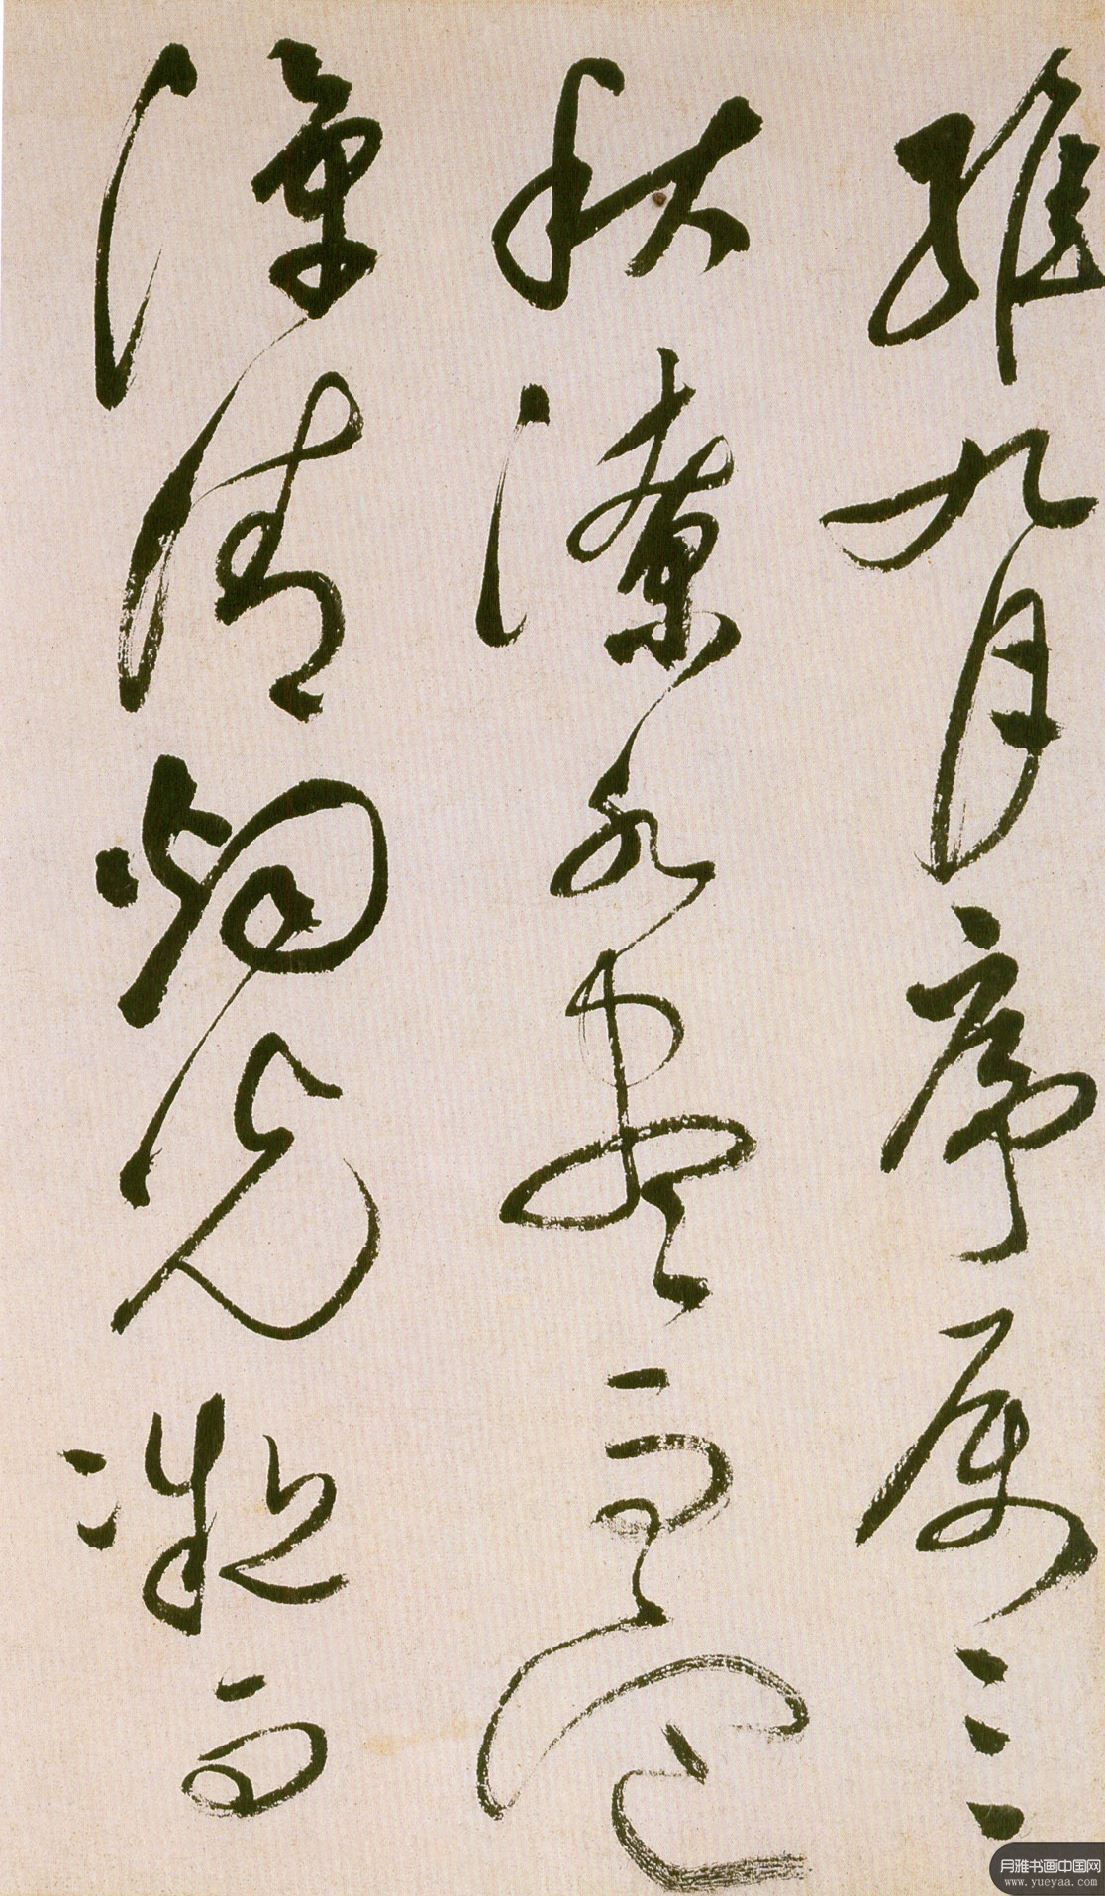 維九月序属三
秋潦水盡而寒
潭清烟光凝而
月雅书画中国网
www.yueyaa.com